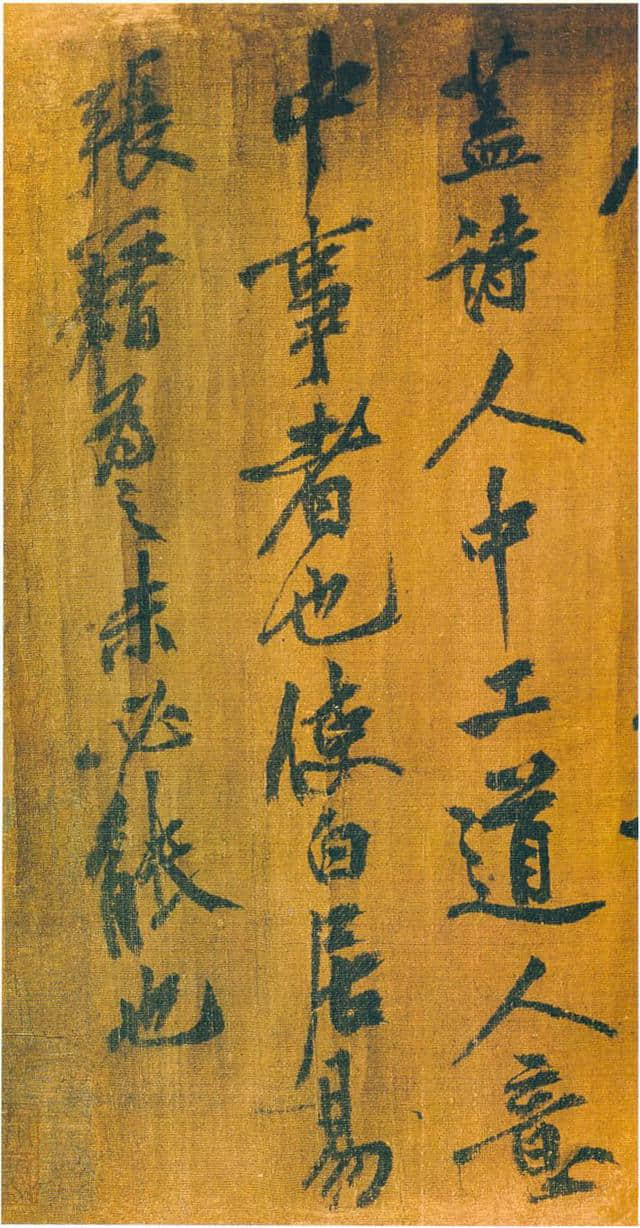 盖詩人中工道人意
中事者也使白居易
張籍為之未必能也